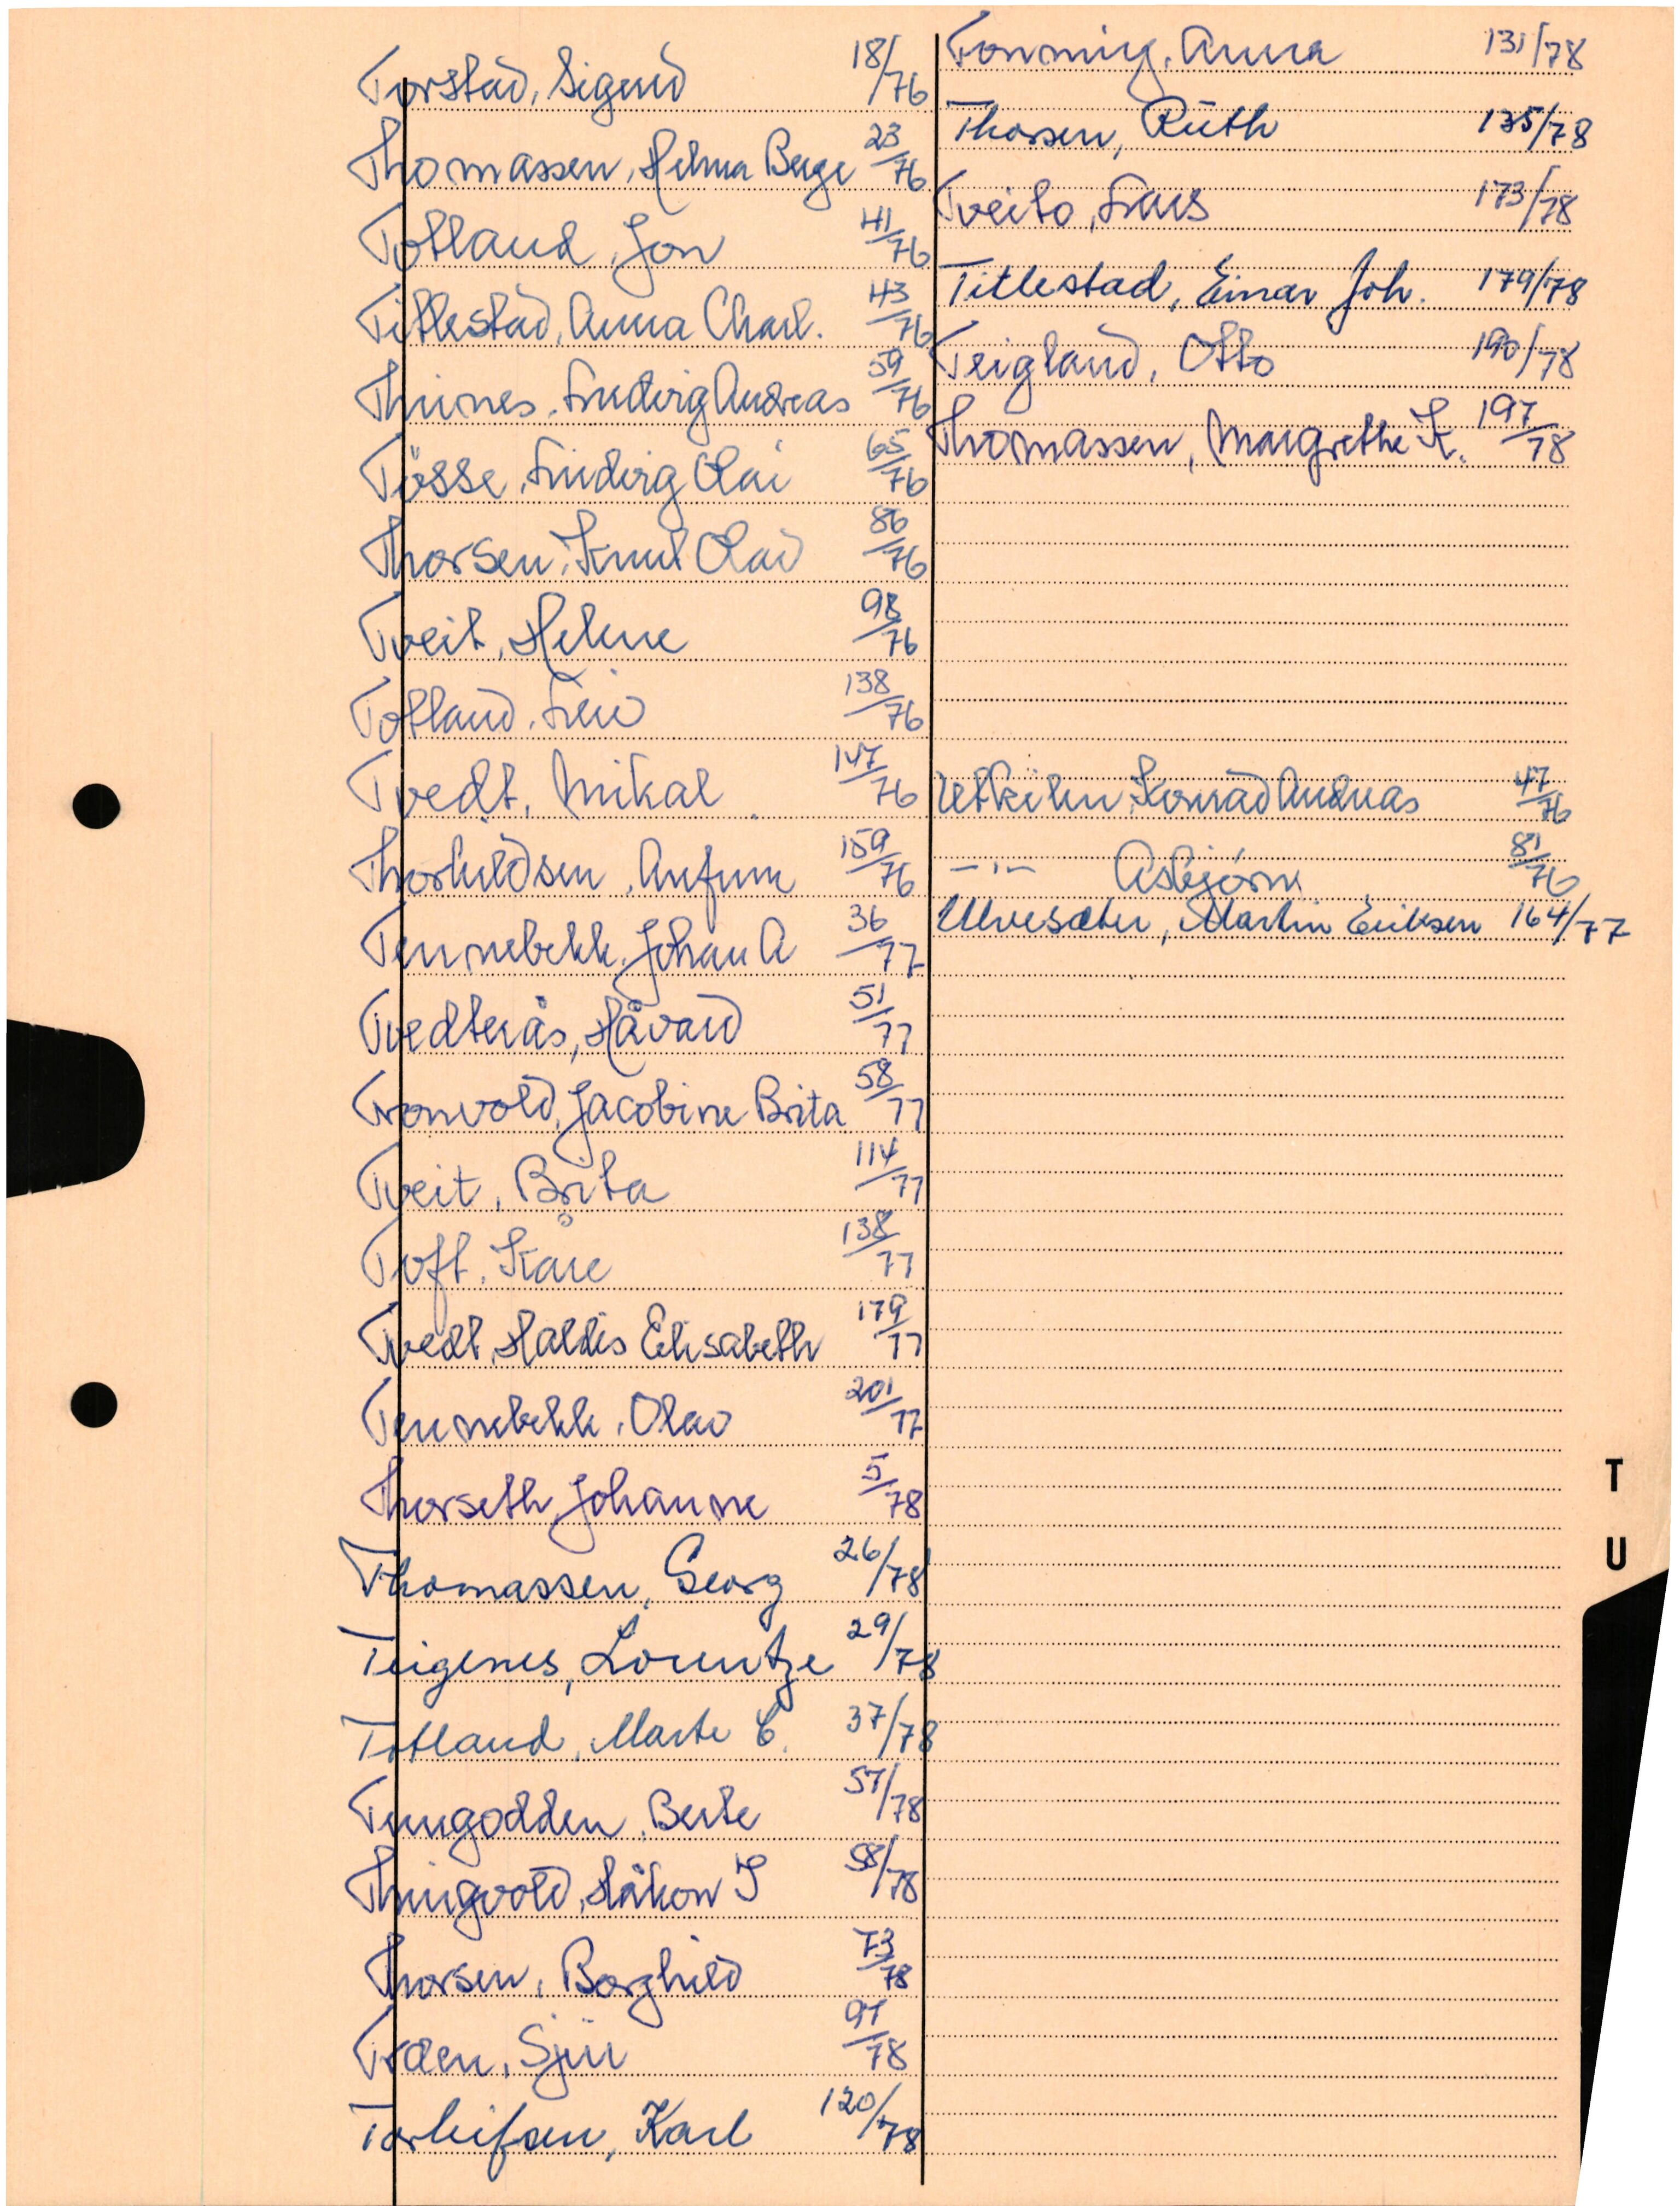 Torstad, Sigurd 18/76
Thomassen, Helma Berge 23/76
Totland, Jon 41/76
Titlestad, Anna Charl. 43/76
Thunes, Ludvig Andreas 59/76
Tösse, Ludvig Olai 65/76
Thorsen, Knut Olai 86/76
Tveit, Helene 98/76
Totland, Leiv 138/76
Tvedt, Mikal 147/76
Thorkildsen, Anfinn 159/76
Tennebekk, Johan A 36/77
Tvedterås, Håvard 51/77
Tronvold, Jacobine Brita 58/77
Tveit, Brita 114/77
Toft, Kåre 138/77
Tvedt, Haldis Elisabeth 179/77
Tennebekk, Olav 201/77
Thorseth, Johanne 5/78
Thomassen, Georg 26/78
Teigenes, Lorentze 29/78
Totland, Marte C. 37/78
Tungodden, Berte 57/78
Thingvold, Håkon J 58/78
Thorsen, Borghild 73/78
Træen, Sjur 97/78
Torleifsen, Karl 120/78
Tonning, Anna 131/78
Thorsen, Ruth 135/78
Tveito, Lars 173/78
Titlestad, Einar Joh. 179/78
Teigland, Otto 190/78
Thomassen, Margrethe K. 197/78
Utkilen, Konrad Andreas 47/76
-"- Asbjørn 81/76
Ulvesæter, Martin Eriksen 164/77
T
U